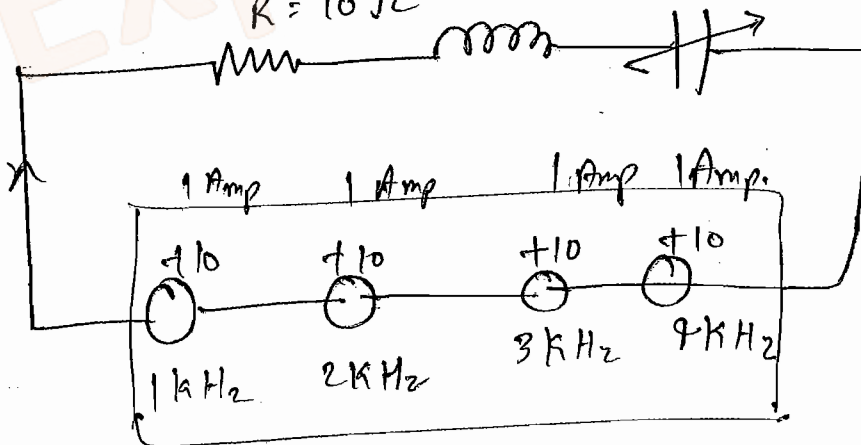 R = 10 Ω
1 Amp 1 Amp 1 Amp 1 Amp.
+10 +10 +10 +10
1 kHz 2 KHz 3 KHz 4 KHz